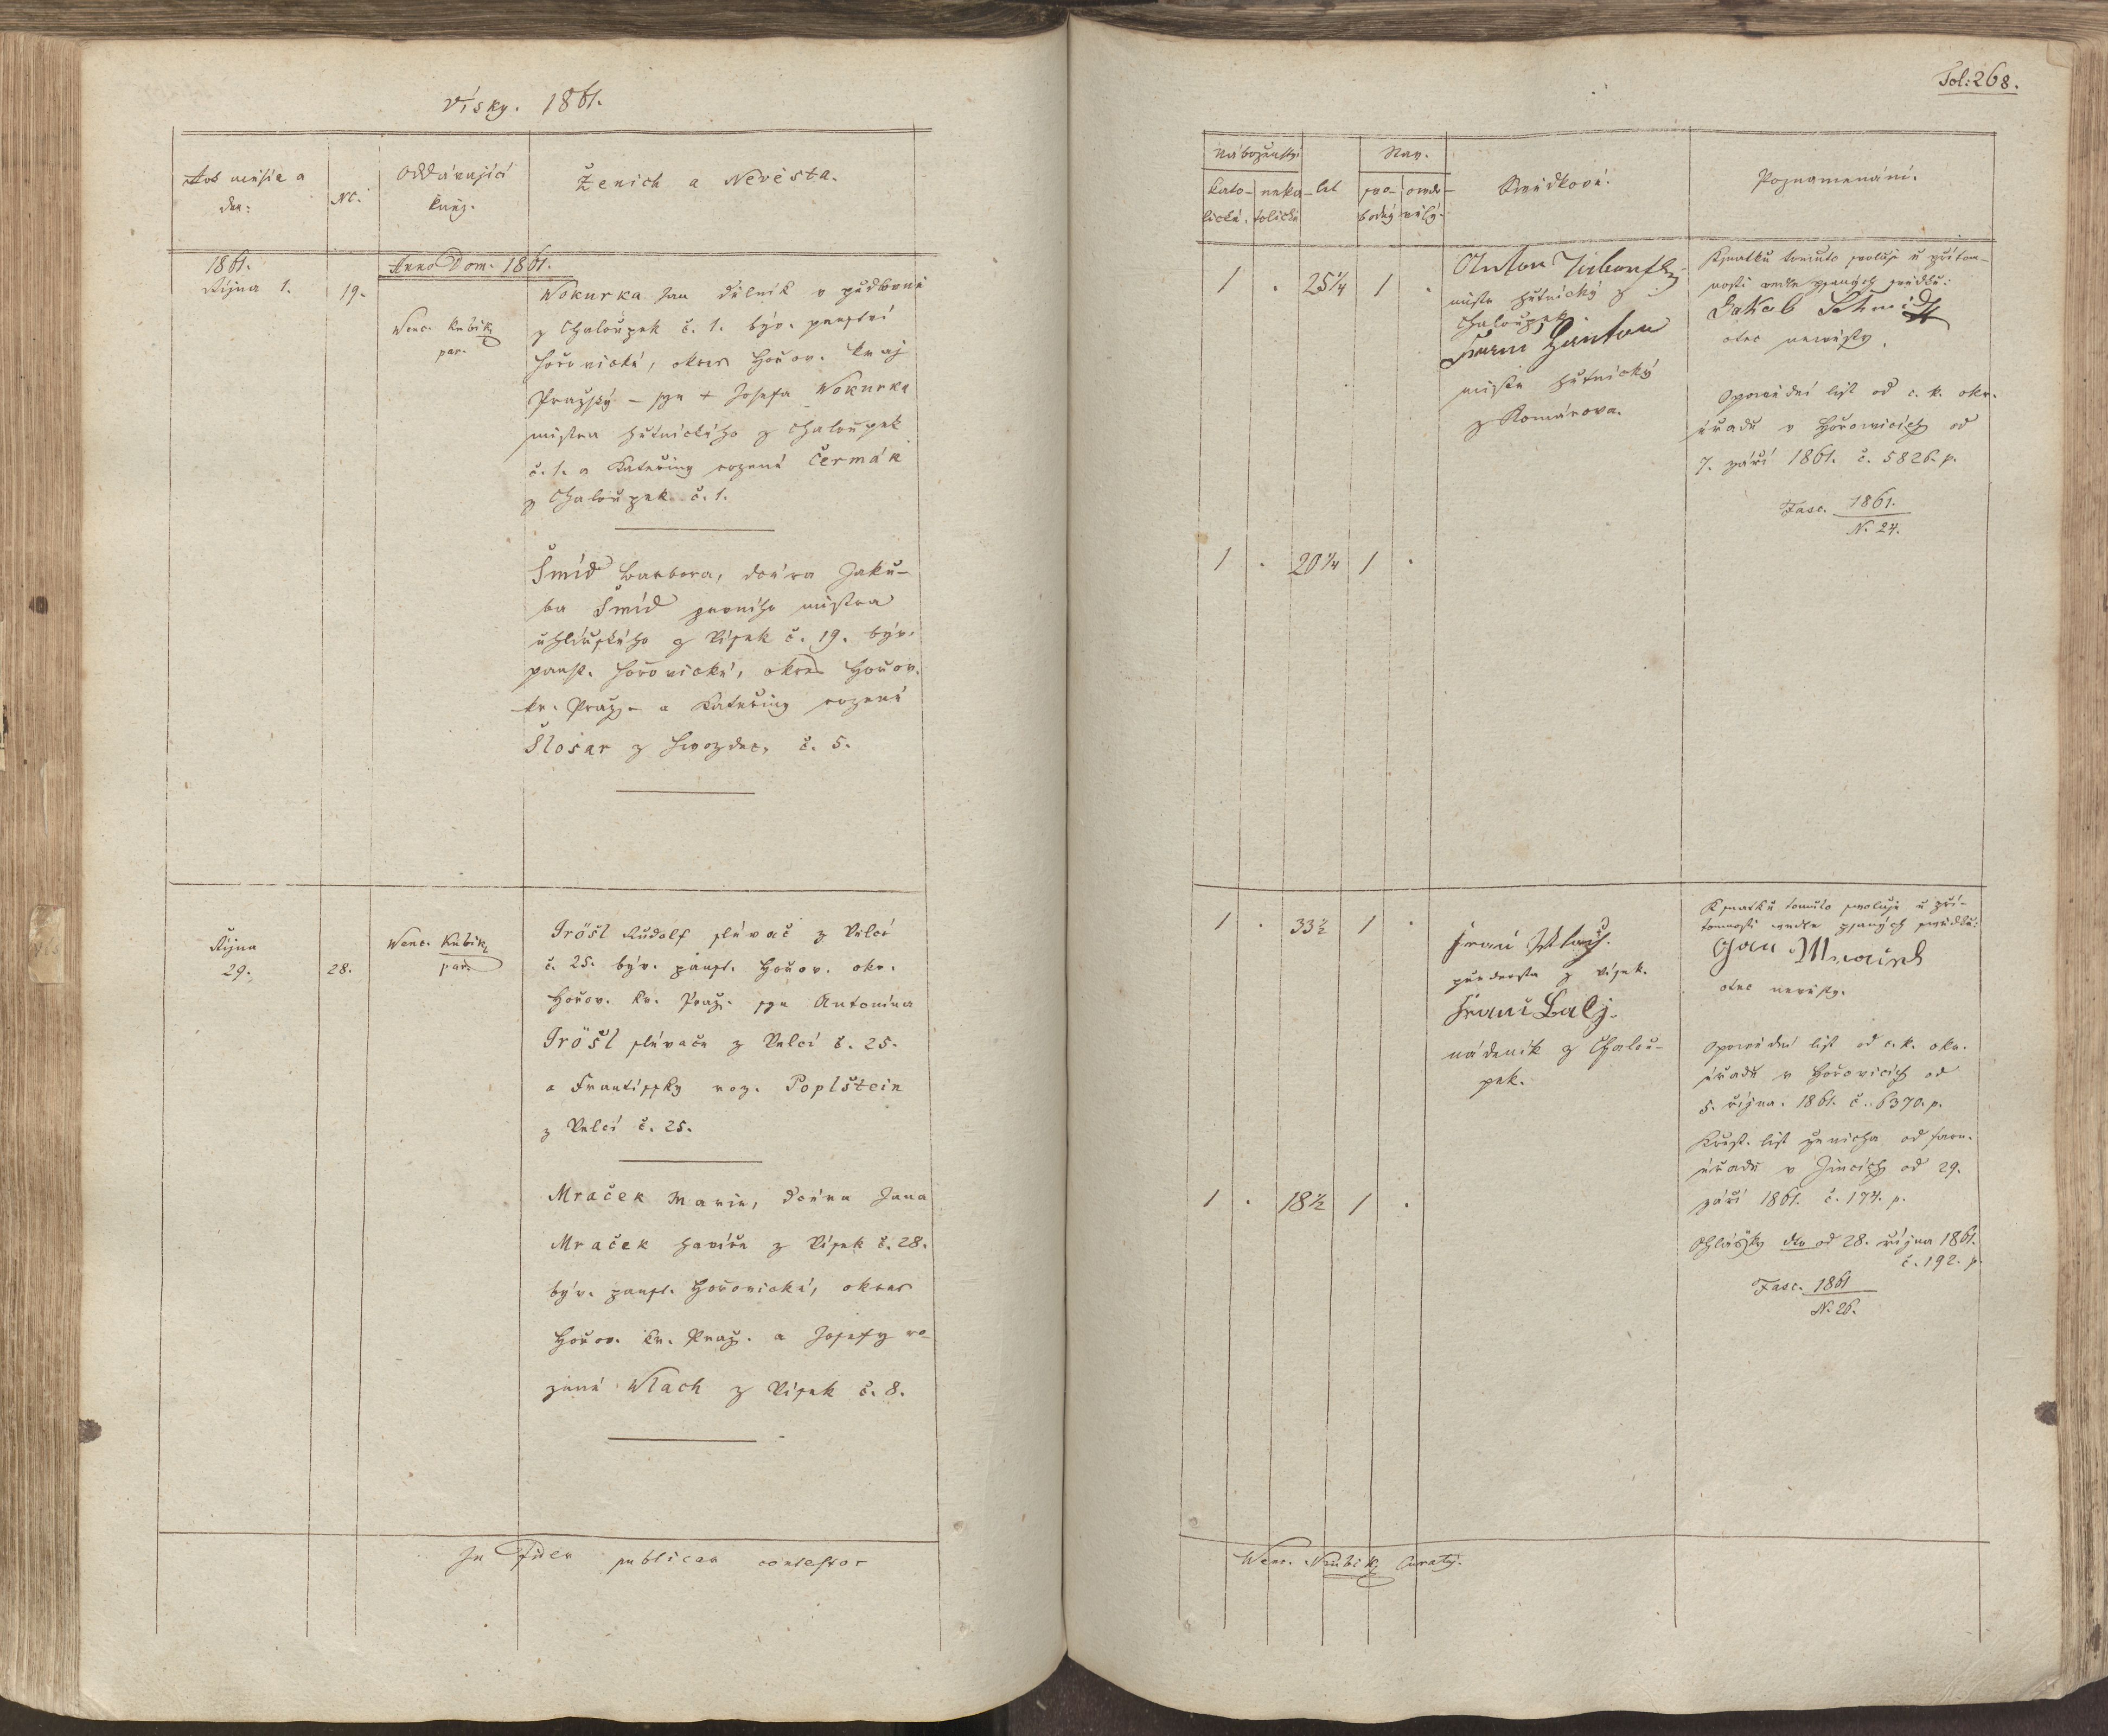 Vísky. 1861.
Fol: 268.
Rok měsíc a
den:
Nč.
Oddávající
kněz.
Ženich a Nevěsta.
1861.
Října 1.
19.
Anno Dom. 1861.
Wenc. Kubik
par.
Wokurka Jan dělník v
z Chaloupek č. 1. býv. panství
hořovické, okres Hořov. kraj
Pražský – syn + Josefa Wokurka
mistra hutnického z Chaloupek
č. 1. a Kateřiny rozené Čermák
z Chaloupek č. 1.
Šmíd Barbora, dcera Jaku-
ba Šmíd mistra
uhlířského z Vísek č. 19. býv.
panst. hořovické, okres Hořov.
kr. Praž. a Kateřiny rozené
Šlosar z Hvozdec, č. 5.
Října
29.
28.
Wenc. Kubik
par.
Gröšl Rudolf slévač z Velcí
č. 25. býv. panst. Hořov. okr.
Hořov. kr. Praž. syn Antonína
Gröšl slévače z Velcí č. 25.
a Františky roz. Poplštein
z Velcí č. 25.
Mraček Marie, dcera Jana
Mraček havíře z Vísek č. 28.
býv. panst. Hořovické, okres
Hořov. kr. Praž. a Josefy ro-
zené Wlach z Vísek č. 8.
In fidem publicam contestor
Náboženství
Stav.
kato-
lické.
neka-
tolické
let
svo-
bodný
ovdo-
vělý.
Svědkové.
Poznamenání.
1 . 25 1/4 1 .
Anton
mistr hutnický z
Chaloupek.
Franc
mistr hutnický
z Komárova.
K sňatku tomuto svoluje u přítom-
nosti vedle psaných svědků:
Jakob Schmidt
otec nevěsty.
Opovědní list od c. k. okr.
úřadu v Hořovicích od
7. září 1861. č. 5826. p.
Fasc. 1861.
N. 24.
1 . 20 1/4 1 .
1 . 33 1/2 1 .
Franc Wlach.
z Vísek.
Franc Balý.
nádeník z Chalou-
pek.
K sňatku tomuto svoluje u pří-
tomnosti vedle psaných svědků:
Jan Mraček
otec nevěsty.
Opovědní list od c. k. okr.
úřadu v Hořovicích od
5. října. 1861. č. 6370. p.
Křest. list ženicha od farn.
úřadu v Jincích od 29.
září 1861. č. 174. p.
Ohlášky dto od 28. října 1861.
č. 192. p.
Fasc. 1861
N. 26.
1 . 18 1/2 1 .
Wenc. Kubik